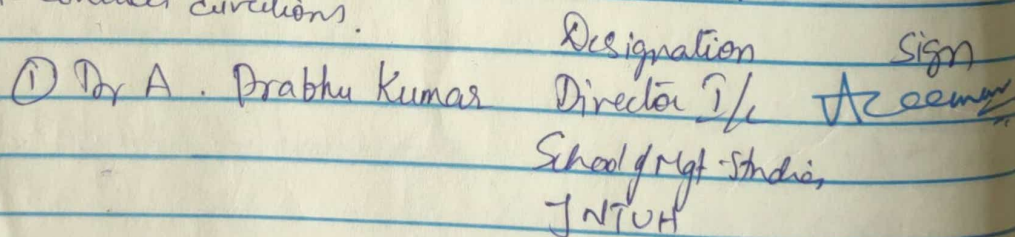 Designation Sign
① Dr A. Prabhu Kumar Director I/c
School of Mgt Studies,
JNTUH